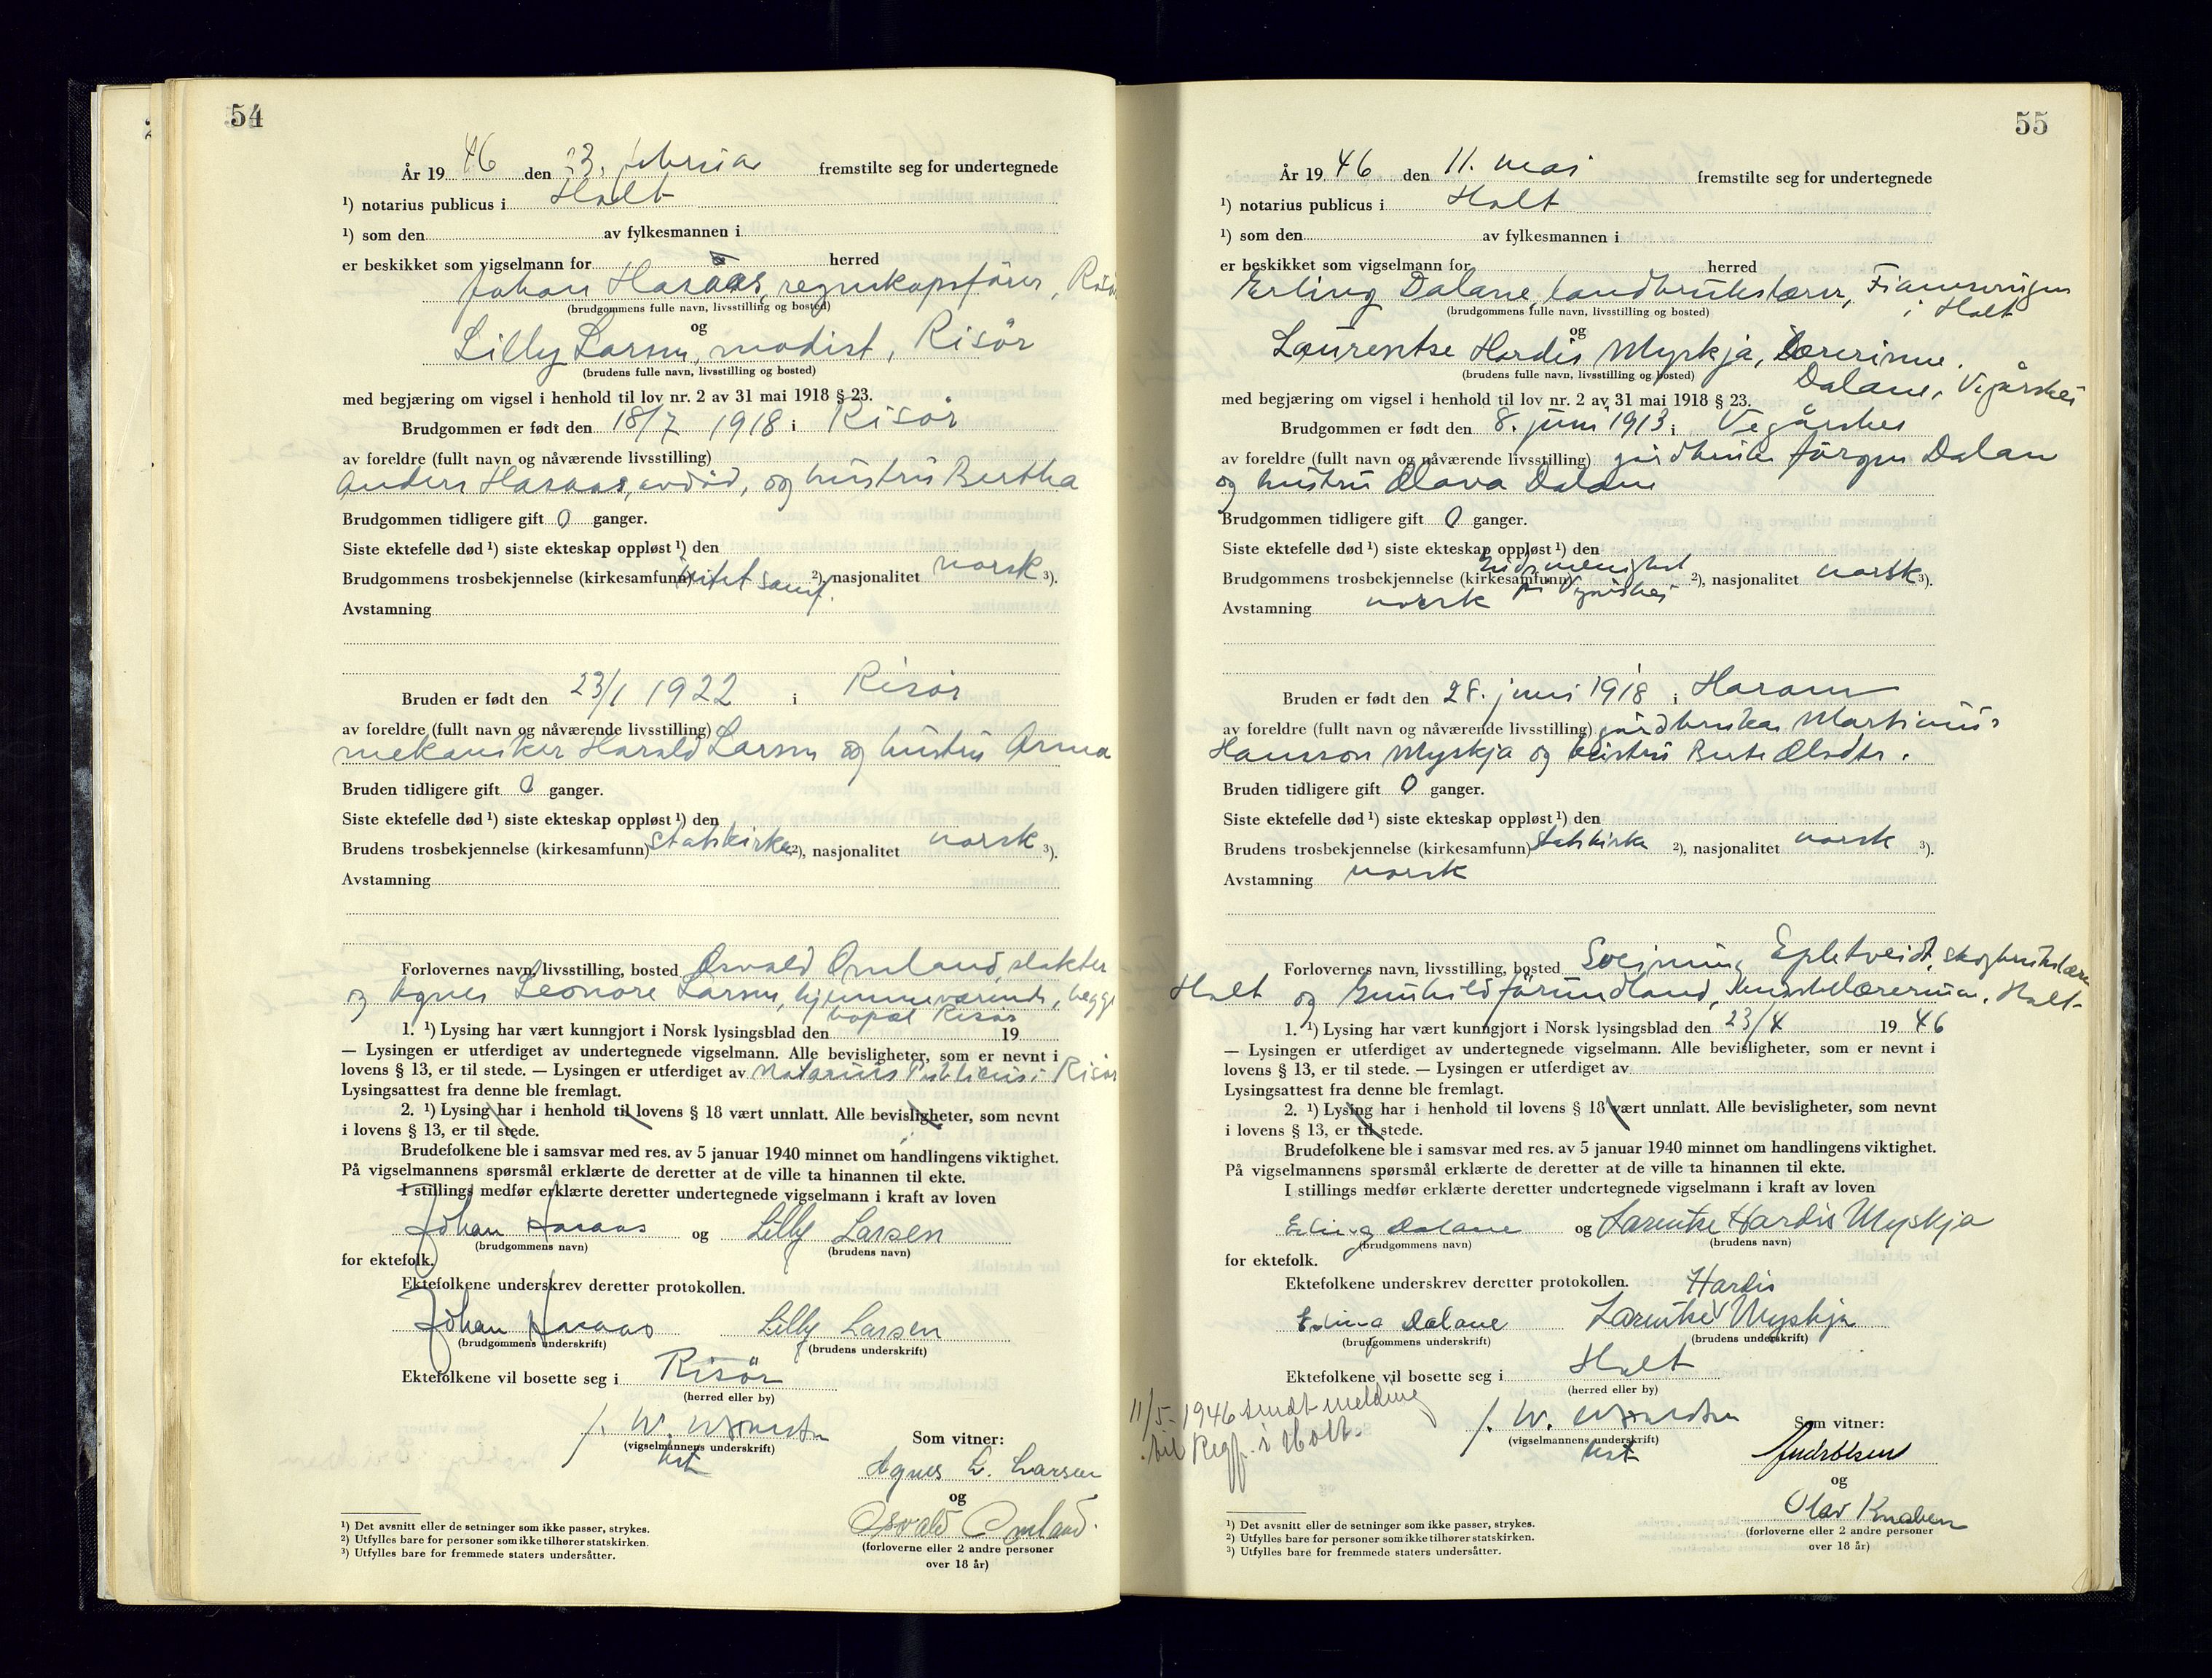 54
År 19 46 den 23. februar fremstilte seg for undertegnede
¹) notarius publicus i Holt
¹) som den av fylkesmannen i
er beskikket som vigselmann for herred
Johan Haraas, regnskapsfører,
(brudgommens fulle navn, livsstilling og bosted)
og
Lilly Larsen, modist, Risör
(brudens fulle navn, livsstilling og bosted)
med begjæring om vigsel i henhold til lov nr. 2 av 31 mai 1918 § 23.
Brudgommen er født den 18/7 1918 i Risör
av foreldre (fullt navn og nåværende livsstilling)
Anders Haraas, avdöd, og hustru Bertha
Brudgommen tidligere gift 0 ganger.
Siste ektefelle død ¹) siste ekteskap oppløst ¹) den
Brudgommens trosbekjennelse (kirkesamfunn) ²), nasjonalitet norsk ³).
Avstamning
Bruden er født den 23/1 1922 i Risör
av foreldre (fullt navn og nåværende livsstilling)
mekaniker Harald Larsen og hustru Anna
Bruden tidligere gift 0 ganger.
Siste ektefelle død ¹) siste ekteskap oppløst ¹) den
Brudens trosbekjennelse (kirkesamfunn) statskirken ²), nasjonalitet norsk ³).
Avstamning
Forlovernes navn, livsstilling, bosted Osvald Omland, slakter
og Agnes Leonore Larsen, hjemmeværende, begge
bopæl Risör
1. ¹) Lysing har vært kunngjort i Norsk lysingsblad den 19
— Lysingen er utferdiget av undertegnede vigselmann. Alle bevisligheter, som er nevnt i
lovens § 13, er til stede. — Lysingen er utferdiget av Notarius Publicus i Risör
Lysingsattest fra denne ble fremlagt.
2. ¹) Lysing har i henhold til lovens § 18 vært unnlatt. Alle bevisligheter, som nevnt
i lovens § 13, er til stede.
Brudefolkene ble i samsvar med res. av 5 januar 1940 minnet om handlingens viktighet.
På vigselmannens spørsmål erklærte de deretter at de ville ta hinannen til ekte.
I stillings medfør erklærte deretter undertegnede vigselmann i kraft av loven
Johan Haraas og Lilly Larsen
(brudgommens navn) (brudens navn)
for ektefolk.
Ektefolkene underskrev deretter protokollen.
Johan Haraas Lilly Larsen
(brudgommens underskrift) (brudens underskrift)
Ektefolkene vil bosette seg i Risör
(herred eller by)
J. W.
(vigselmannens underskrift)
Som vitner:
Agnes L. Larsen
og
Osvald Omland.
(forloverne eller 2 andre personer
over 18 år)
¹) Det avsnitt eller de setninger som ikke passer, strykes.
²) Utfylles bare for personer som ikke tilhører statskirken.
³) Utfylles bare for fremmede staters undersåtter.
55
År 19 46 den 11. mai fremstilte seg for undertegnede
¹) notarius publicus i Holt
¹) som den av fylkesmannen i
er beskikket som vigselmann for herred
Erling Dalane, landbrukslærer,
i Holt
(brudgommens fulle navn, livsstilling og bosted)
og
Laurentse Hardis Myskja, lærerinne,
(brudens fulle navn, livsstilling og bosted)
Dalane, Vegårshei
med begjæring om vigsel i henhold til lov nr. 2 av 31 mai 1918 § 23.
Brudgommen er født den 8. juni 1913 i Vegårshei
av foreldre (fullt navn og nåværende livsstilling) gårdbruker Jörgen Dalan
og hustru Olava Dalane
Brudgommen tidligere gift 0 ganger.
Siste ektefelle død ¹) siste ekteskap oppløst ¹) den
Brudgommens trosbekjennelse (kirkesamfunn) ²), nasjonalitet norsk ³).
i Vegårshei
Avstamning norsk
Bruden er født den 28. juni 1918 i Haram
av foreldre (fullt navn og nåværende livsstilling) gårdbruker Martinus
Hansson Myskja og hustru Berte Olsdtr.
Bruden tidligere gift 0 ganger.
Siste ektefelle død ¹) siste ekteskap oppløst ¹) den
Brudens trosbekjennelse (kirkesamfunn) statskirke ²), nasjonalitet norsk ³).
Avstamning norsk
Forlovernes navn, livsstilling, bosted Sveinung Epletveidt, skogbrukslærer
Holt og Gunhild Jörundland, Holt
1. ¹) Lysing har vært kunngjort i Norsk lysingsblad den 23/4 19 46
— Lysingen er utferdiget av undertegnede vigselmann. Alle bevisligheter, som er nevnt i
lovens § 13, er til stede. — Lysingen er utferdiget av
Lysingsattest fra denne ble fremlagt.
2. ¹) Lysing har i henhold til lovens § 18 vært unnlatt. Alle bevisligheter, som nevnt
i lovens § 13, er til stede.
Brudefolkene ble i samsvar med res. av 5 januar 1940 minnet om handlingens viktighet.
På vigselmannens spørsmål erklærte de deretter at de ville ta hinannen til ekte.
I stillings medfør erklærte deretter undertegnede vigselmann i kraft av loven
Erling Dalane og Larentse Hardis Myskja
(brudgommens navn) (brudens navn)
for ektefolk.
Ektefolkene underskrev deretter protokollen.
Hardis
Erling Dalane Larentse Myskja
(brudgommens underskrift) (brudens underskrift)
Ektefolkene vil bosette seg i Holt
(herred eller by)
11/5-1946 sendt melding
til Regf. i Holt.
J. W.
(vigselmannens underskrift)
Som vitner:
og
Olav Knaben
(forloverne eller 2 andre personer
over 18 år)
¹) Det avsnitt eller de setninger som ikke passer, strykes.
²) Utfylles bare for personer som ikke tilhører statskirken.
³) Utfylles bare for fremmede staters undersåtter.